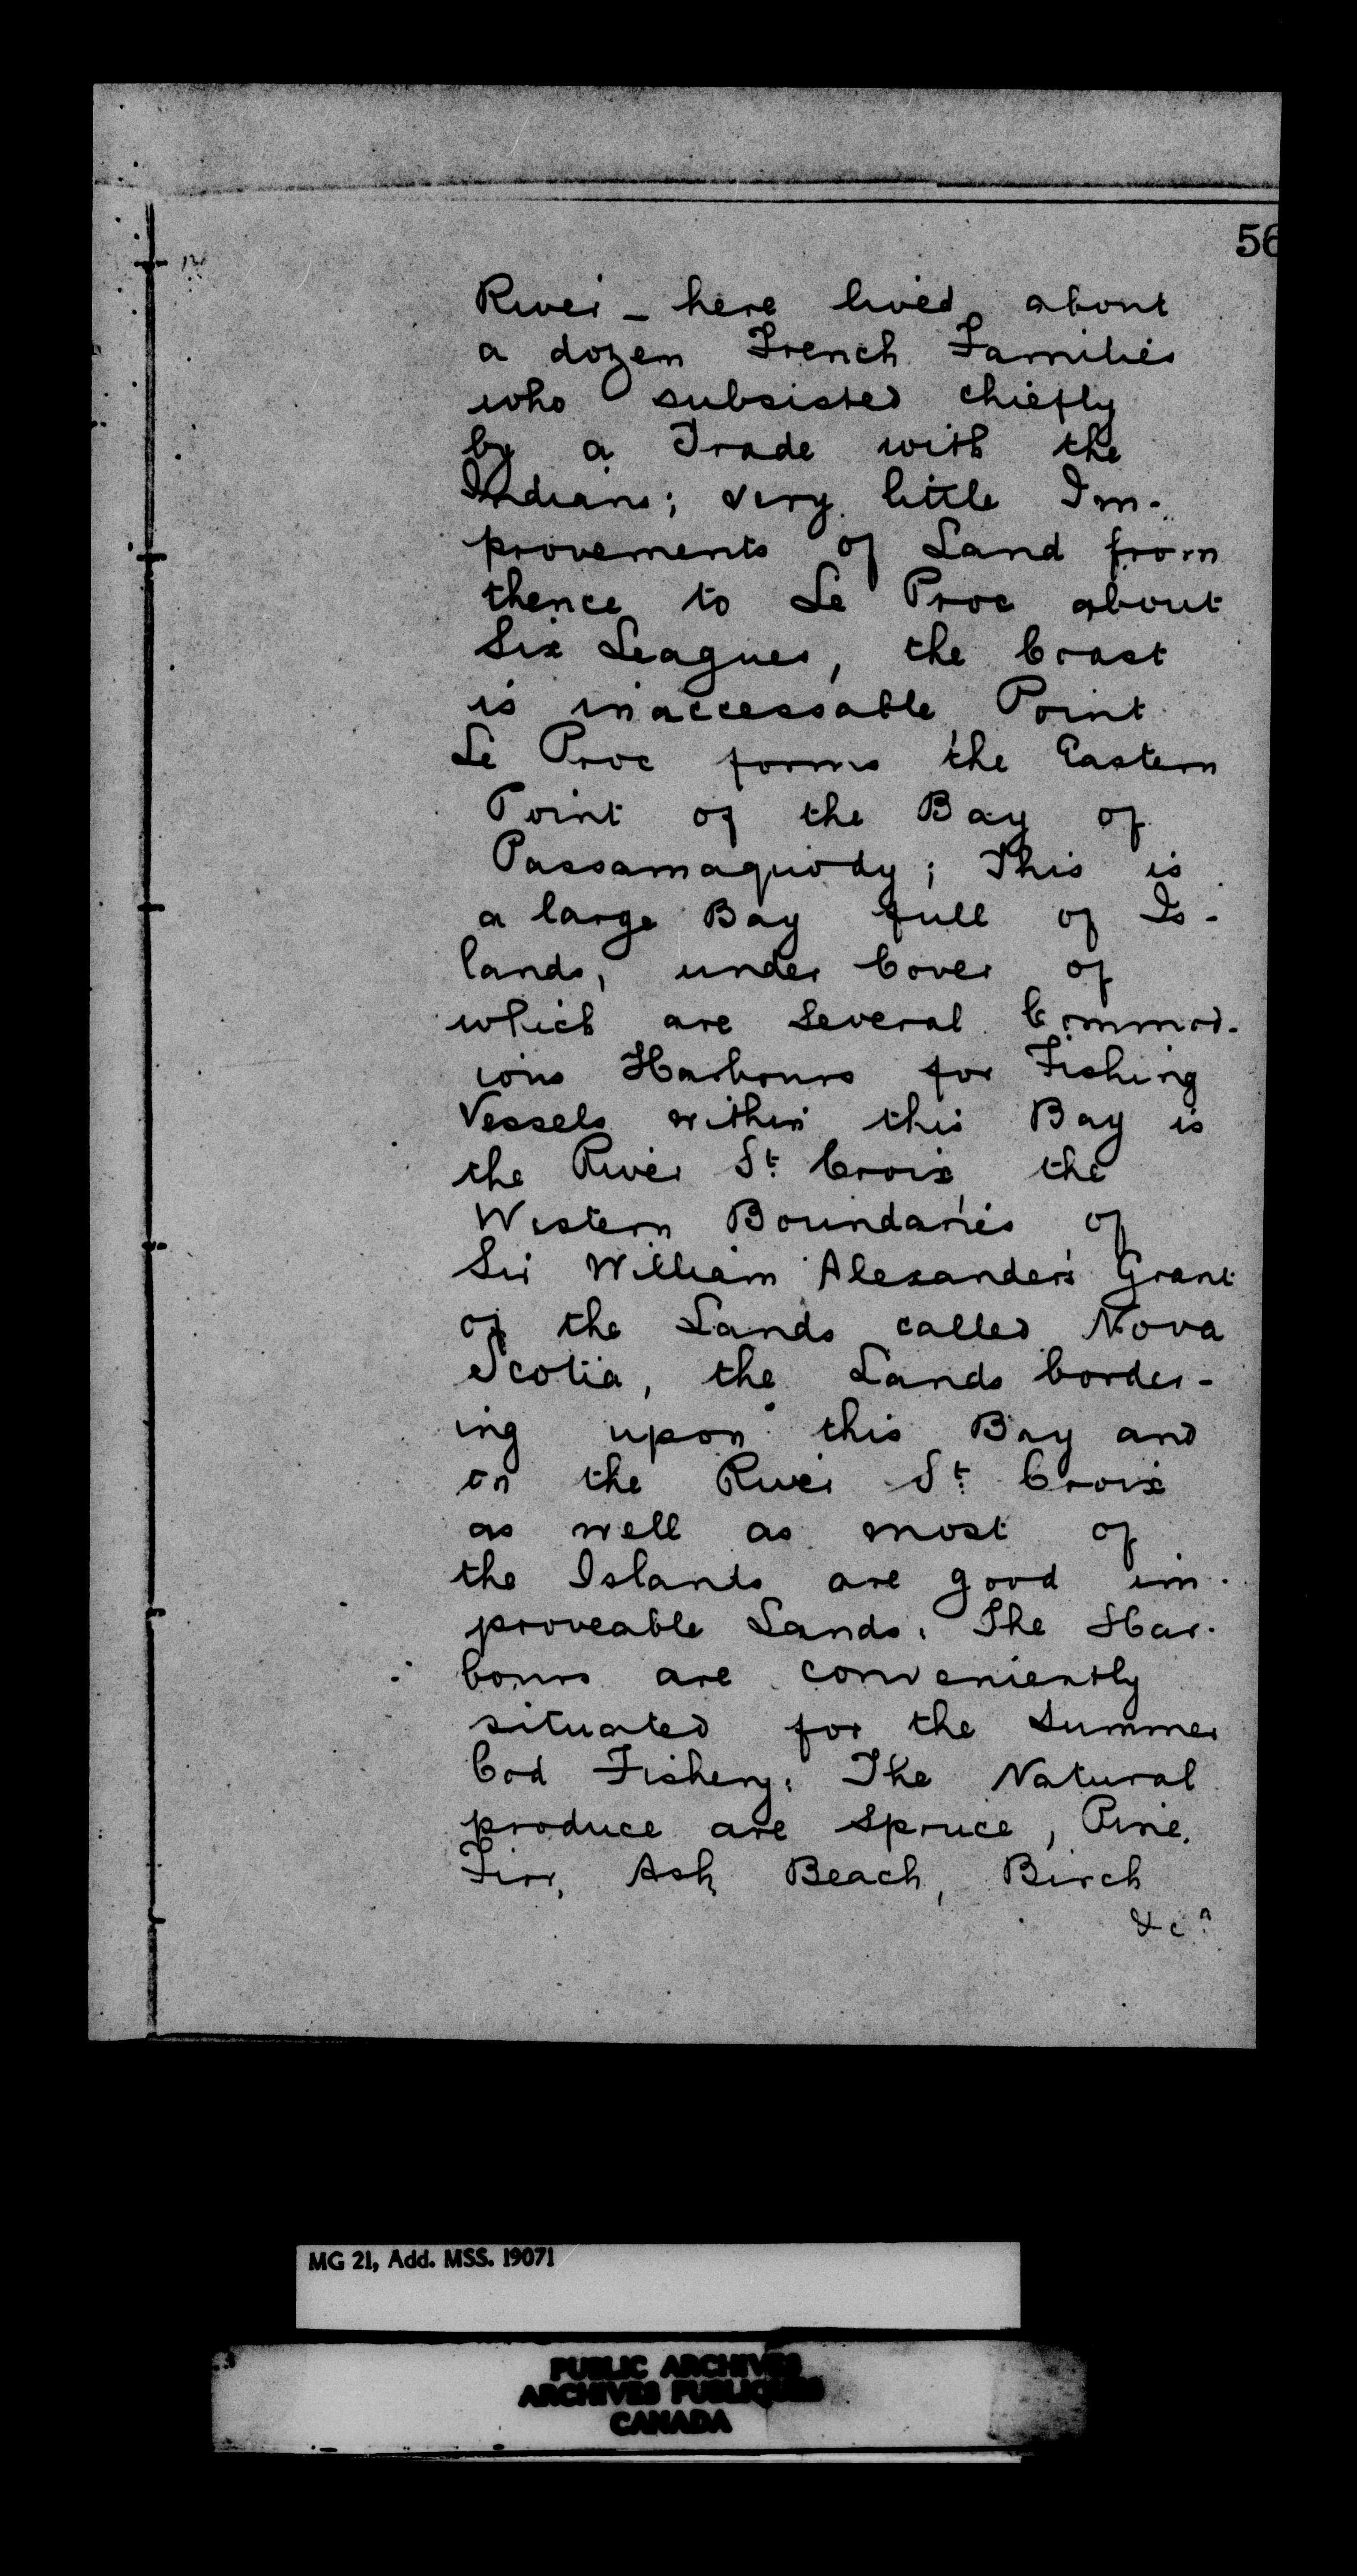 56
River - here lived about
a dozen French Families
who subsisted chiefly
by a Trade with the
Indians; very little Im-
provements of Land from
thence to Le Proc about
Six Leagues, the Coast
is inaccessable, Point
Le Proc forms the Eastern
Point of the Bay of
Passamaquody; This is
a large Bay full of Is-
lands, under Cover of
which are Several Commod-
ious Harbours for Fishing
Vessels within this Bay is
the River St. Croix, the
Western Boundaries of
Sir William Alexander's Grant
of the Lands called Nova
Scotia, the Lands border-
ing upon this Bay and
on the River St. Croix
as well as most of
the Islands are good im-
proveable Lands. The Har-
bours are conveniently
situated for the Summer
Cod Fishery. The Natural
produce are Spruce, Pine,
Firr, Ash, Beach, Birch
&ca
MG 21, Add. MSS. 19071
PUBLIC ARCHIVES
ARCHIVES PUBLIQUES
CANADA